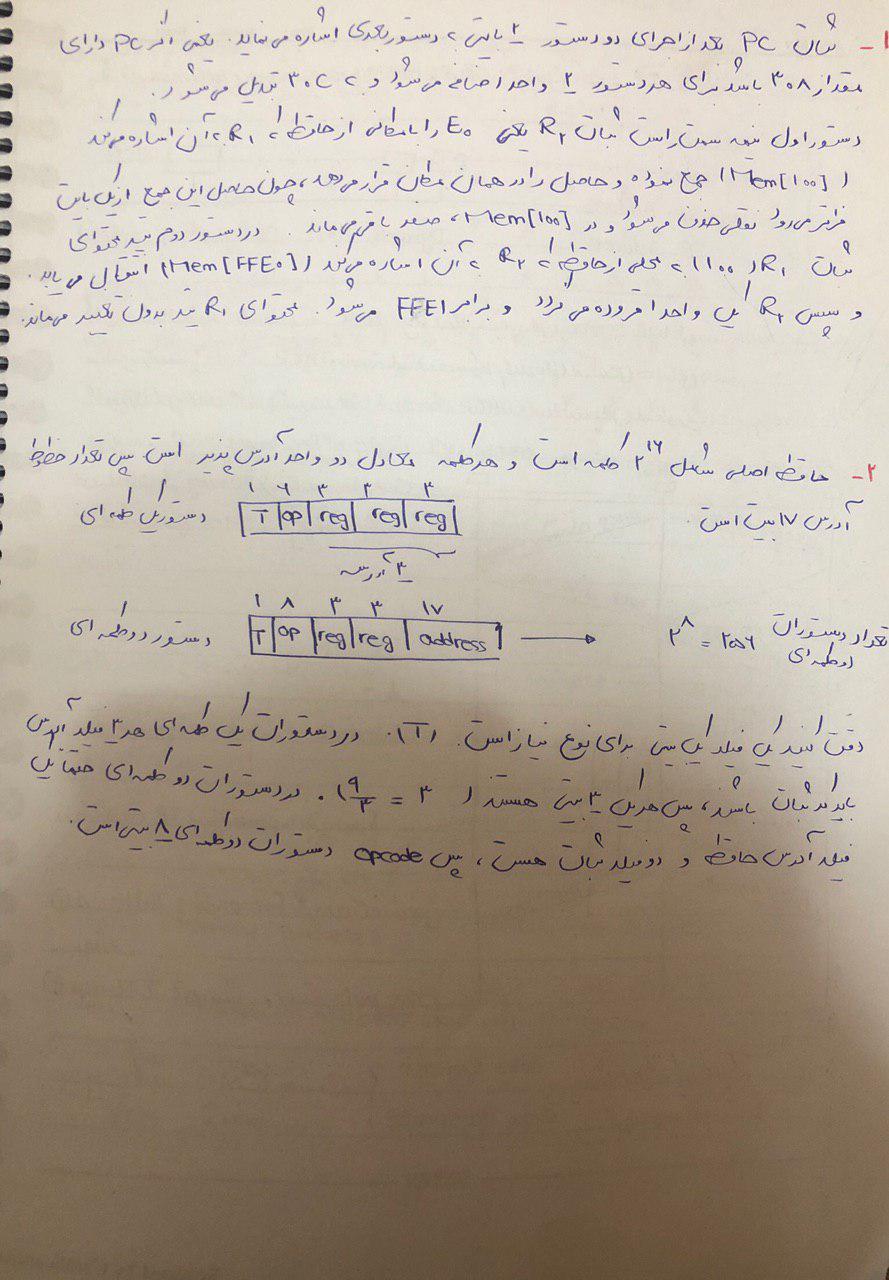 ۱- ثبات PC بعد از اجرای دو دستور ۲ بایتی به دستور بعدی اشاره می نماید. یعنی اگر PC دارای
مقدار ۳۰۸ باشد برای هر دستور ۲ واحد اضافه می شود و به ۳۰C تبدیل می شود.
دستور اول نیمه سمت راست ثبات R۲ یعنی E۰ را با مکانی از حافظه که R۱ به آن اشاره می کند
(Mem[۱۰۰]) جمع نموده و حاصل را در همان مکان قرار می دهد، چون حاصل این جمع از یک بایت
فراتر می رود نقلی حذف می شود و در Mem[۱۰۰]، صفر باقی می ماند. در دستور دوم نیز محتوای
ثبات R۱ (۱۰۰) به محلی از حافظه که R۲ به آن اشاره می کند (Mem[FFE۰]) انتقال می یابد.
و سپس R۲ یک واحد افزوده می گردد و برابر FFE۱ می شود. محتوای R۱ نیز بدون تغییر می ماند.
۲- حافظه اصلی شامل ۲^۱۶ کلمه است و هر کلمه معادل دو واحد آدرس پذیر است. پس تعداد خطوط
آدرس ۱۷ بیت است.
۱ ۶ ۳ ۳ ۳
دستور یک کلمه ای T op reg reg reg
۳ آدرسه
۱ ۸ ۳ ۳ ۱۷
دستور دو کلمه ای T op reg reg address → ۲^۸ = ۲۵۶ تعداد دستورات
دو کلمه ای
دقت کنید یک فیلد یک بیتی برای نوع نیاز است. (T). در دستورات یک کلمه ای هر ۳ فیلد آدرس
باید کد ثبات باشند، پس هر یک ۳ بیتی هستند (۹/۳ = ۳). در دستورات دو کلمه ای حتما یک
فیلد آدرس حافظه و دو فیلد ثبات هست، پس opcode دستورات دو کلمه ای ۸ بیتی است.